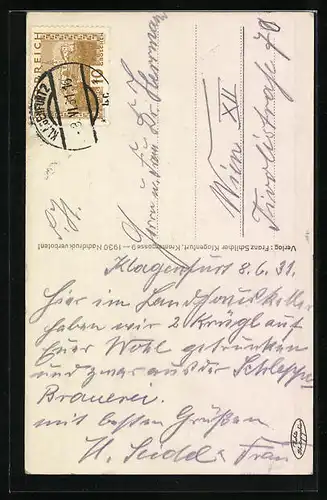 ÖSTERREICH
10
KLAGENFURT 2
P. T.
Herrn u. Frau Dr. Herrmann
Wien
XII
Tivolistraße 70
Verlag: Franz Schilcher Klagenfurt, Kramergasse 9 — 1930 Nachdruck verboten!
Klagenfurt 8.6.31.
Hier im Landhauskeller
haben wir 2 Krügl auf
Euer Wohl getrunken
und zwar aus der Schleppe
Brauerei.
mit besten Grüßen
H. Seidl u. Frau